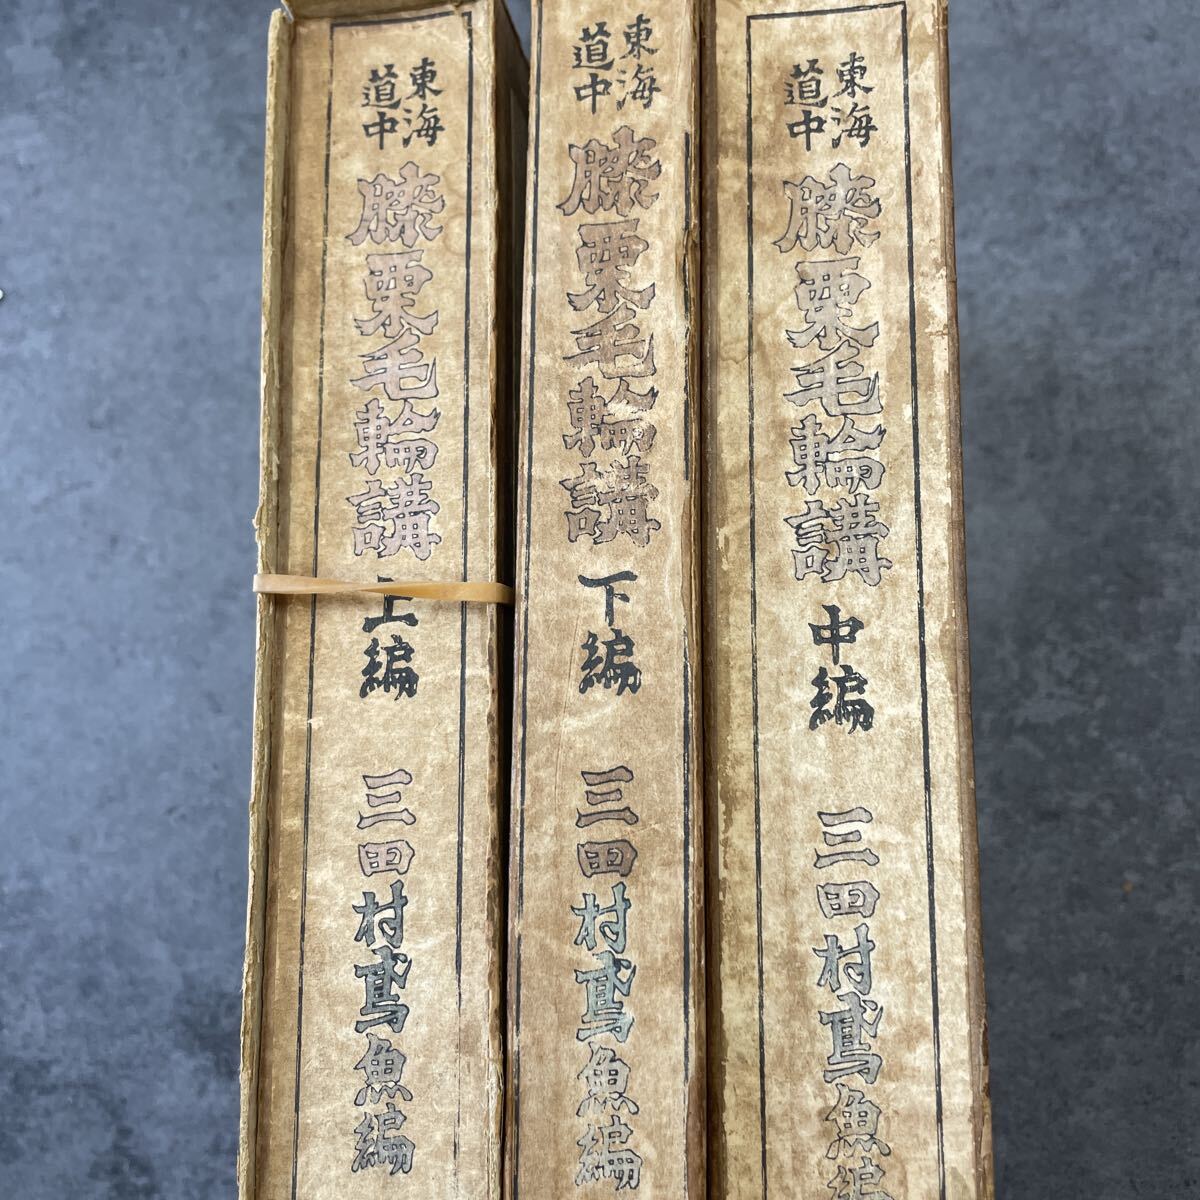 東海道中
膝栗毛輪講
上編
三田村鳶魚編
東海道中
膝栗毛輪講
下編
三田村鳶魚編
東海道中
膝栗毛輪講
中編
三田村鳶魚編